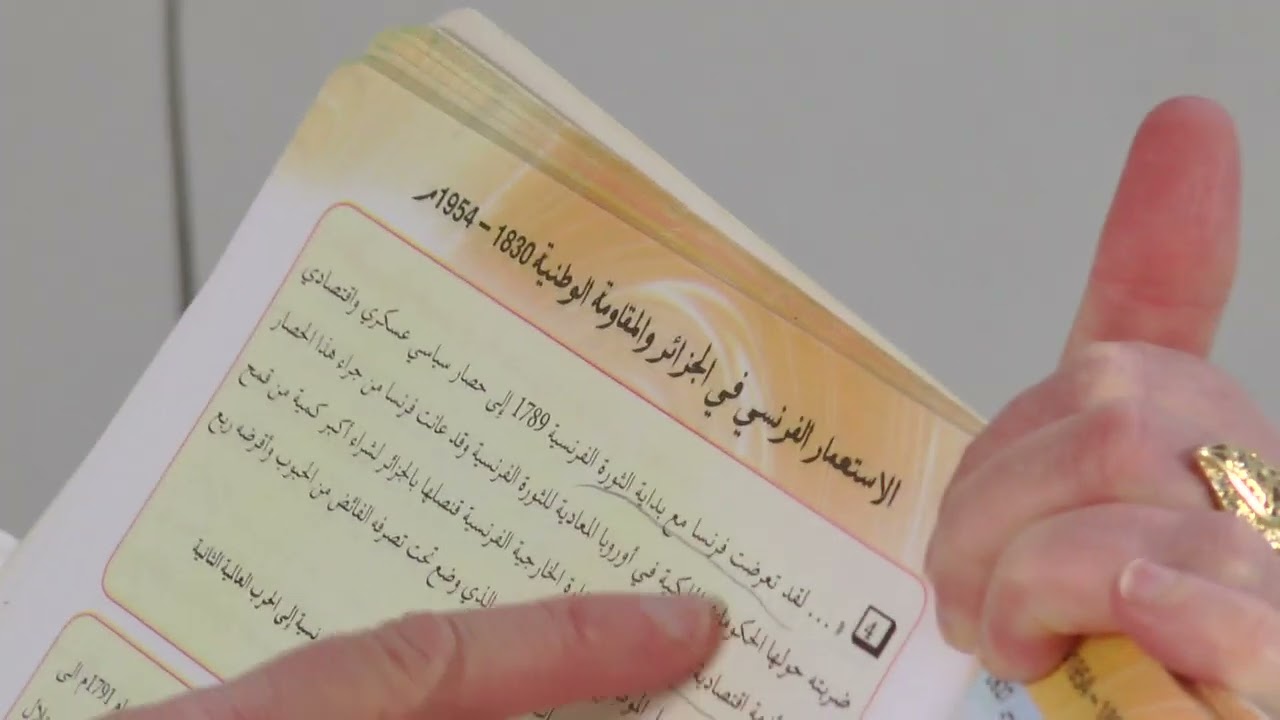 الاستعمار الفرنسي في الجزائر والمقاومة الوطنية 1830 - 1954م
4
... لقد تعرضت فرنسا مع بداية الثورة الفرنسية 1789 إلى حصار سياسي عسكري واقتصادي
ضربته حولها الحكومات الملكية في أوروبا المعادية للثورة الفرنسية وقد عانت فرنسا من جراء هذا الحصار
اقتصادية الخارجية الفرنسية قنصلها بالجزائر لشراء أكبر كمية من قمح
الذي وضع تحت تصرفه الفائض من الحبوب وأقرضه ربع
إلى الحرب العالمية الثانية
1791م الى